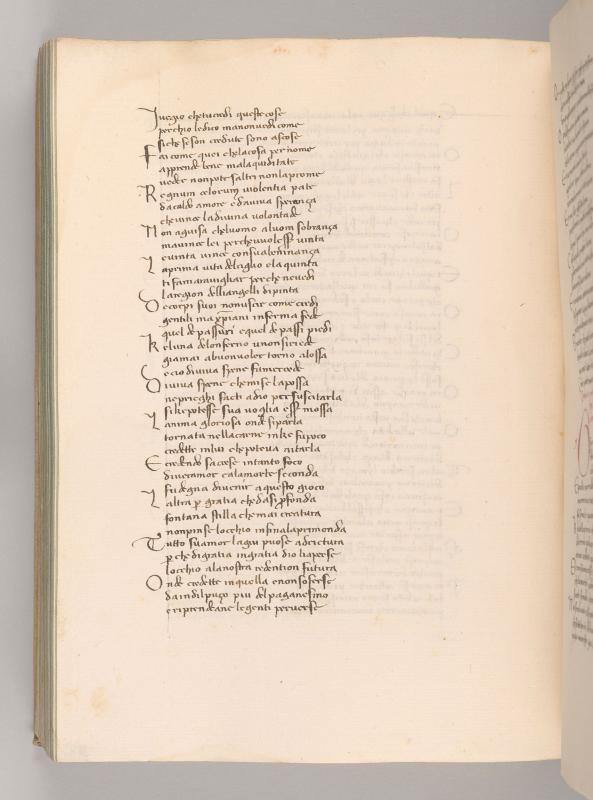 Iveggio chetucredi queste cose
perchio ledico manonvedi come
siche seson credute sono ascose
Fai come quei chelacosa per nome
apprende bene mala quiditate
vede nonpote saltri nonlaprome
Regnum celorum violentia pate
dacaldo amore edaviva speranza
chevince ladivina volontade
Non aguisa chelomo aluom sobranza
mavince lei perchevuolesser vinta
evinta vince consuabeninanza
La prima vita delciglio ela quinta
ti fa maravigliar perche nevedi
la region delliangelli dipinta
De corpi suoi nonuscir come credi
gentili ma xpiani inferma fede
quel de passuri equel de passi piedi
Keluna delonferno unonsiriede
giamai abuonvoler torno alossa
ecio diviva spene fumercede
Di viva spene chemise lapossa
neprieghi facti adio per suscitarla
sikepotesse sua voglia esser mossa
Lanima gloriosa onde siparla
tornata nellacarne inke fupoco
credette inlui chepoteva aitarla
E credendo saccese intanto foco
diveramor calamorte seconda
fudegna divenir aquesto gioco
Laltra per gratia chedasi profonda
fontana stilla chemai creatura
nonpinse locchio infinalaprimonda
Tutto suamor lagiu puose adrictura
per che digratia ingratia dio liaperse
locchio alanostra redention futura
Onde credette inquella enonsoferse
daindilpuzo piu delpaganesimo
eriprendeane legenti perverse